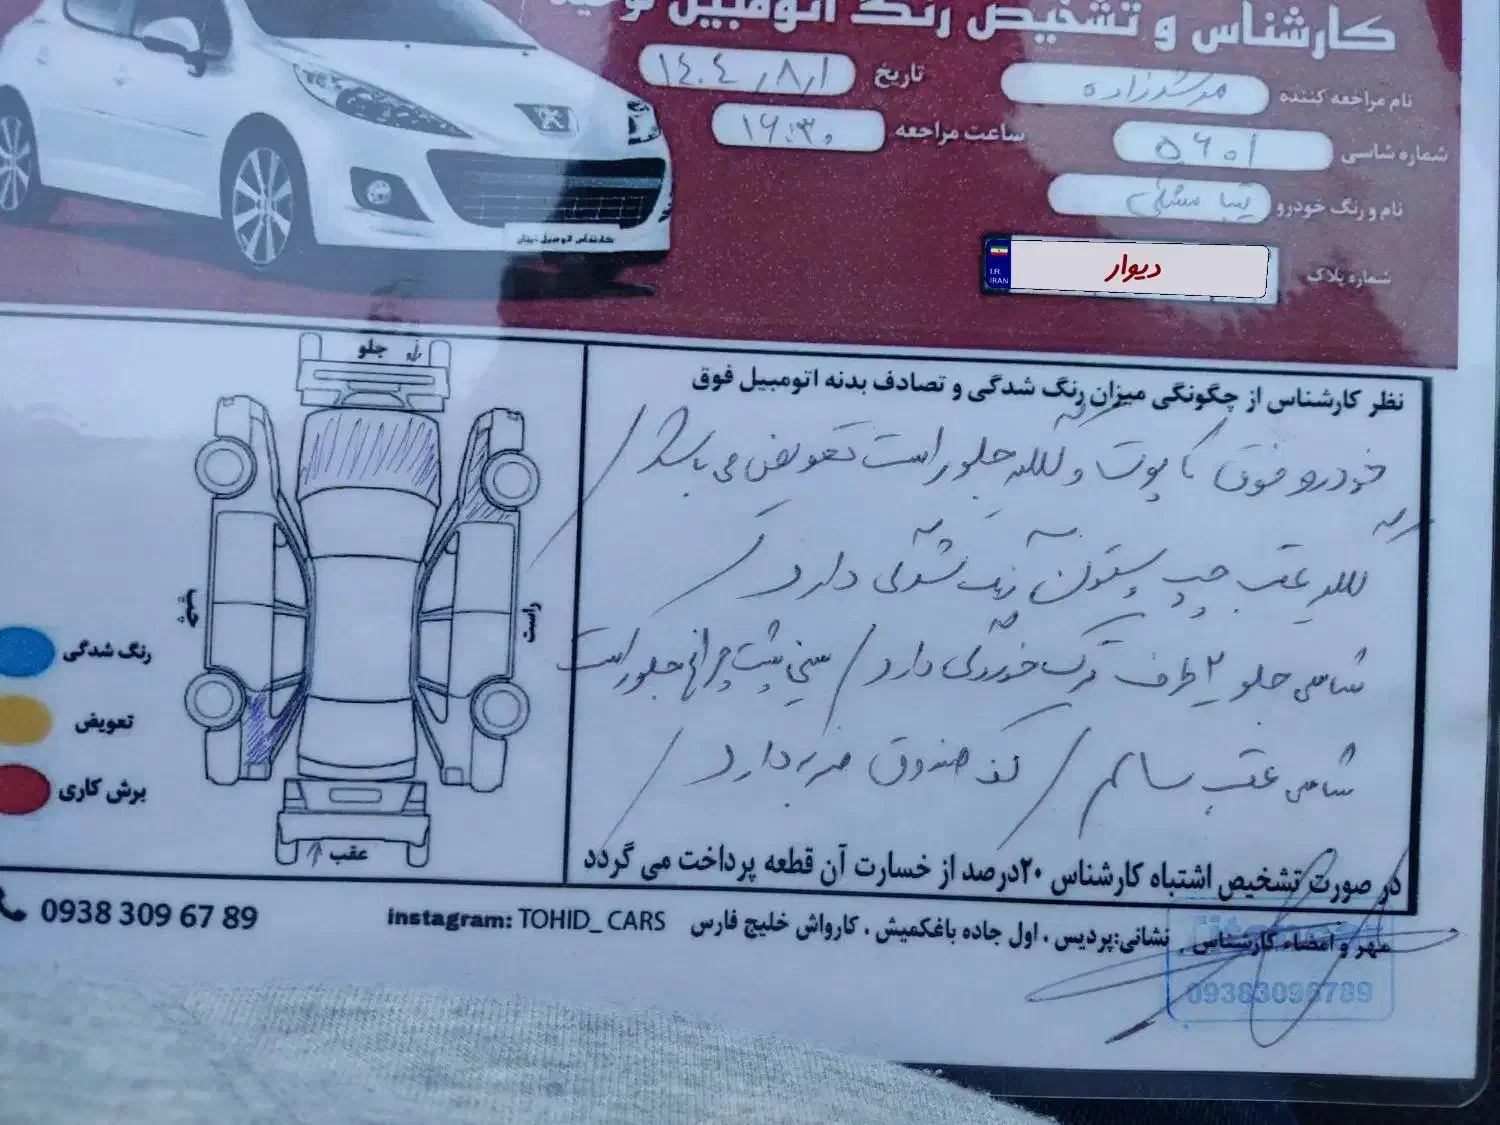 کارشناس و تشخیص رنگ اتومبیل توحید
نام مراجعه کننده مرشدزاده
تاریخ ۱۴۰۴٫۸٫۱
شماره شاسی ۵۶۰۱
ساعت مراجعه ۱۶:۳۰
نام و رنگ خودرو تیبا مشکی
شماره پلاک
I.R.
IRAN
دیوار
کارشناس اتومبیل تهران
جلو
راست
چپ
عقب
رنگ شدگی
تعویض
برش کاری
نظر کارشناس از چگونگی میزان رنگ شدگی و تصادف بدنه اتومبیل فوق
خودرو فوق کاپوت و گلگیر جلو راست تعویض می باشد /
گلگیر عقب چپ ستون رنگ شدگی دارد /
شاسی جلو ۲ طرف ترک خوردگی دارد / سینی پشت چراغ جلو راست
شاسی عقب سالم / کف صندوق ضربه دارد /
در صورت تشخیص اشتباه کارشناس ۲۰درصد از خسارت آن قطعه پرداخت می گردد
مهر و امضاء کارشناس
نشانی:پردیس ، اول جاده باغکمیش ، کارواش خلیج فارس
instagram: TOHID_CARS
0938 309 67 89
09383096789